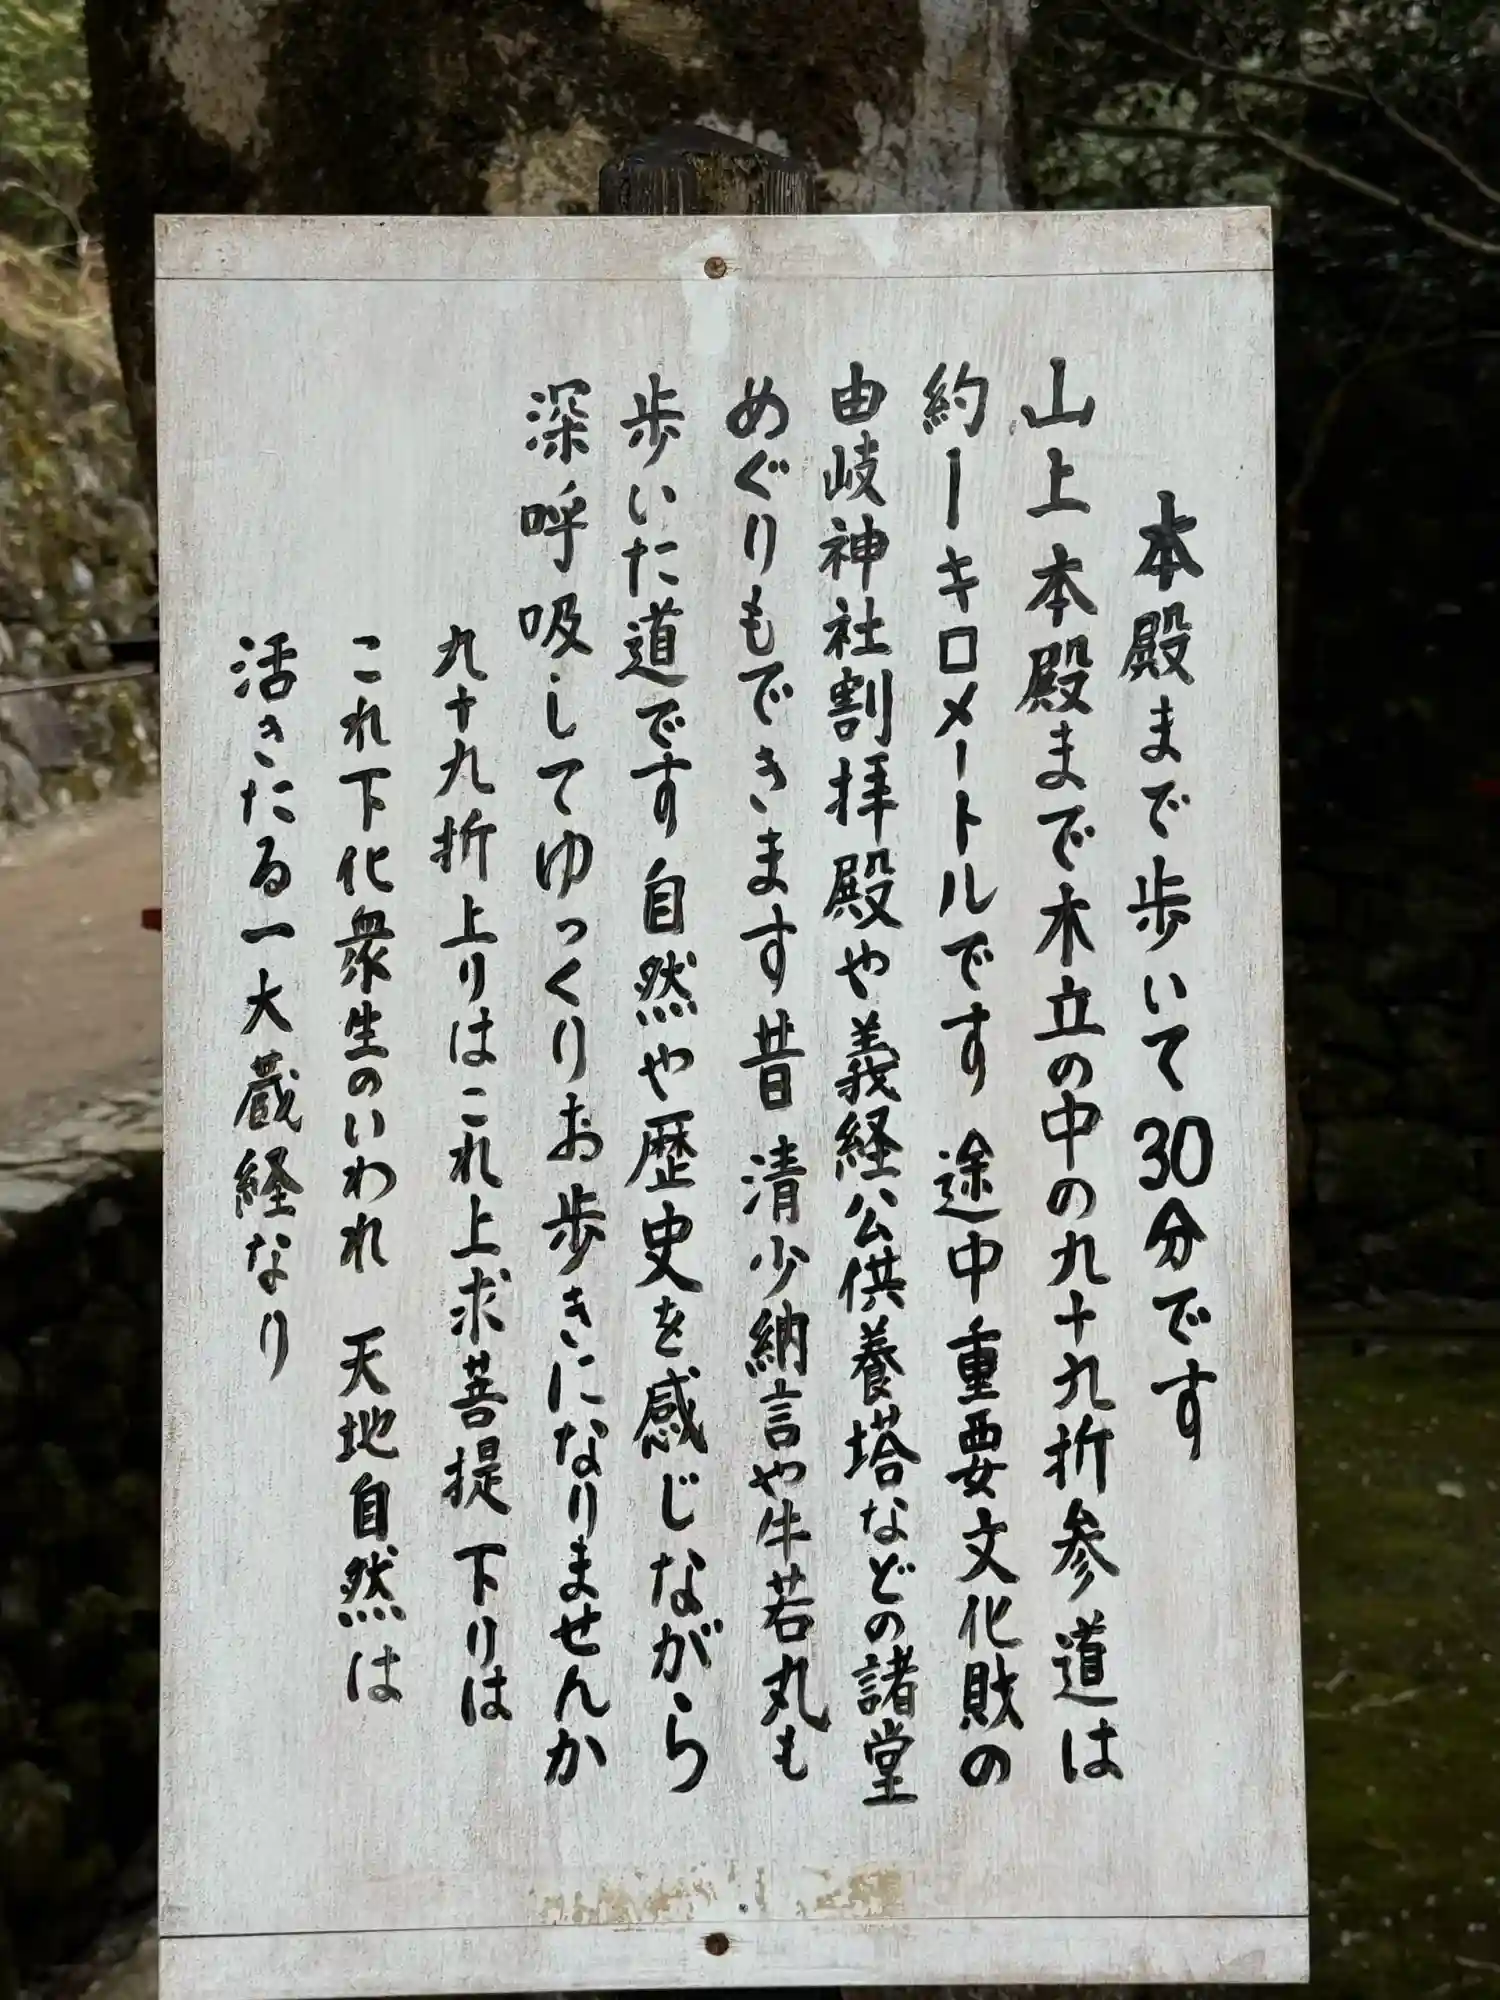 本殿まで歩いて30分です
山上本殿まで木立の中の九十九折参道は
約一キロメートルです 途中重要文化財の
由岐神社割拝殿や義経公供養塔などの諸堂
めぐりもできます昔 清少納言や牛若丸も
歩いた道です 自然や歴史を感じながら
深呼吸してゆっくりお歩きになりませんか
九十九折上りはこれ上求菩提 下りは
これ下化衆生のいわれ 天地自然は
活きたる一大蔵経なり